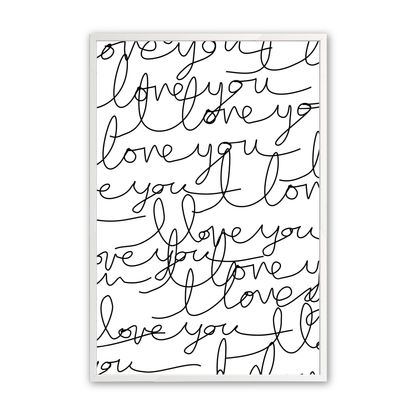 love you
I love you
I love yo
I love you
e you I lov
I love you
ove you I love y
I love
I love you I l
you